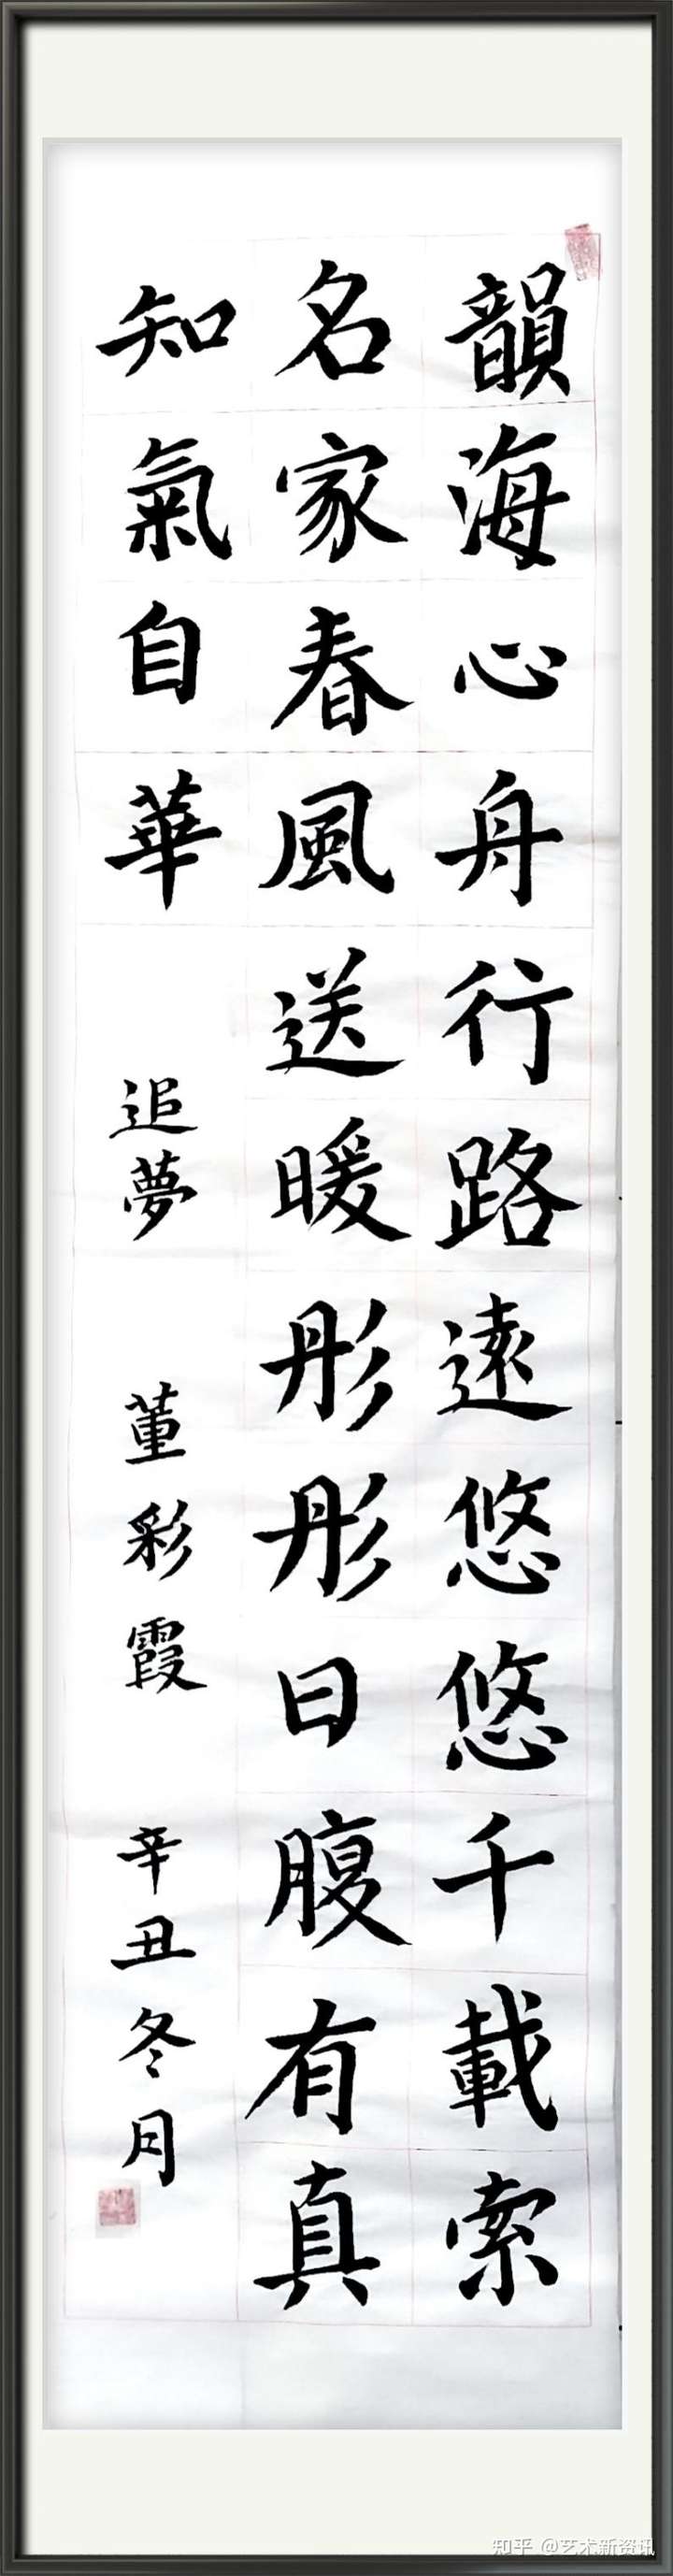 韻海心舟行路遠悠悠千載索
名家春風送暖彤彤日腹有真
知氣自華
追夢
董彩霞
辛丑冬月
知乎 @艺术新资讯